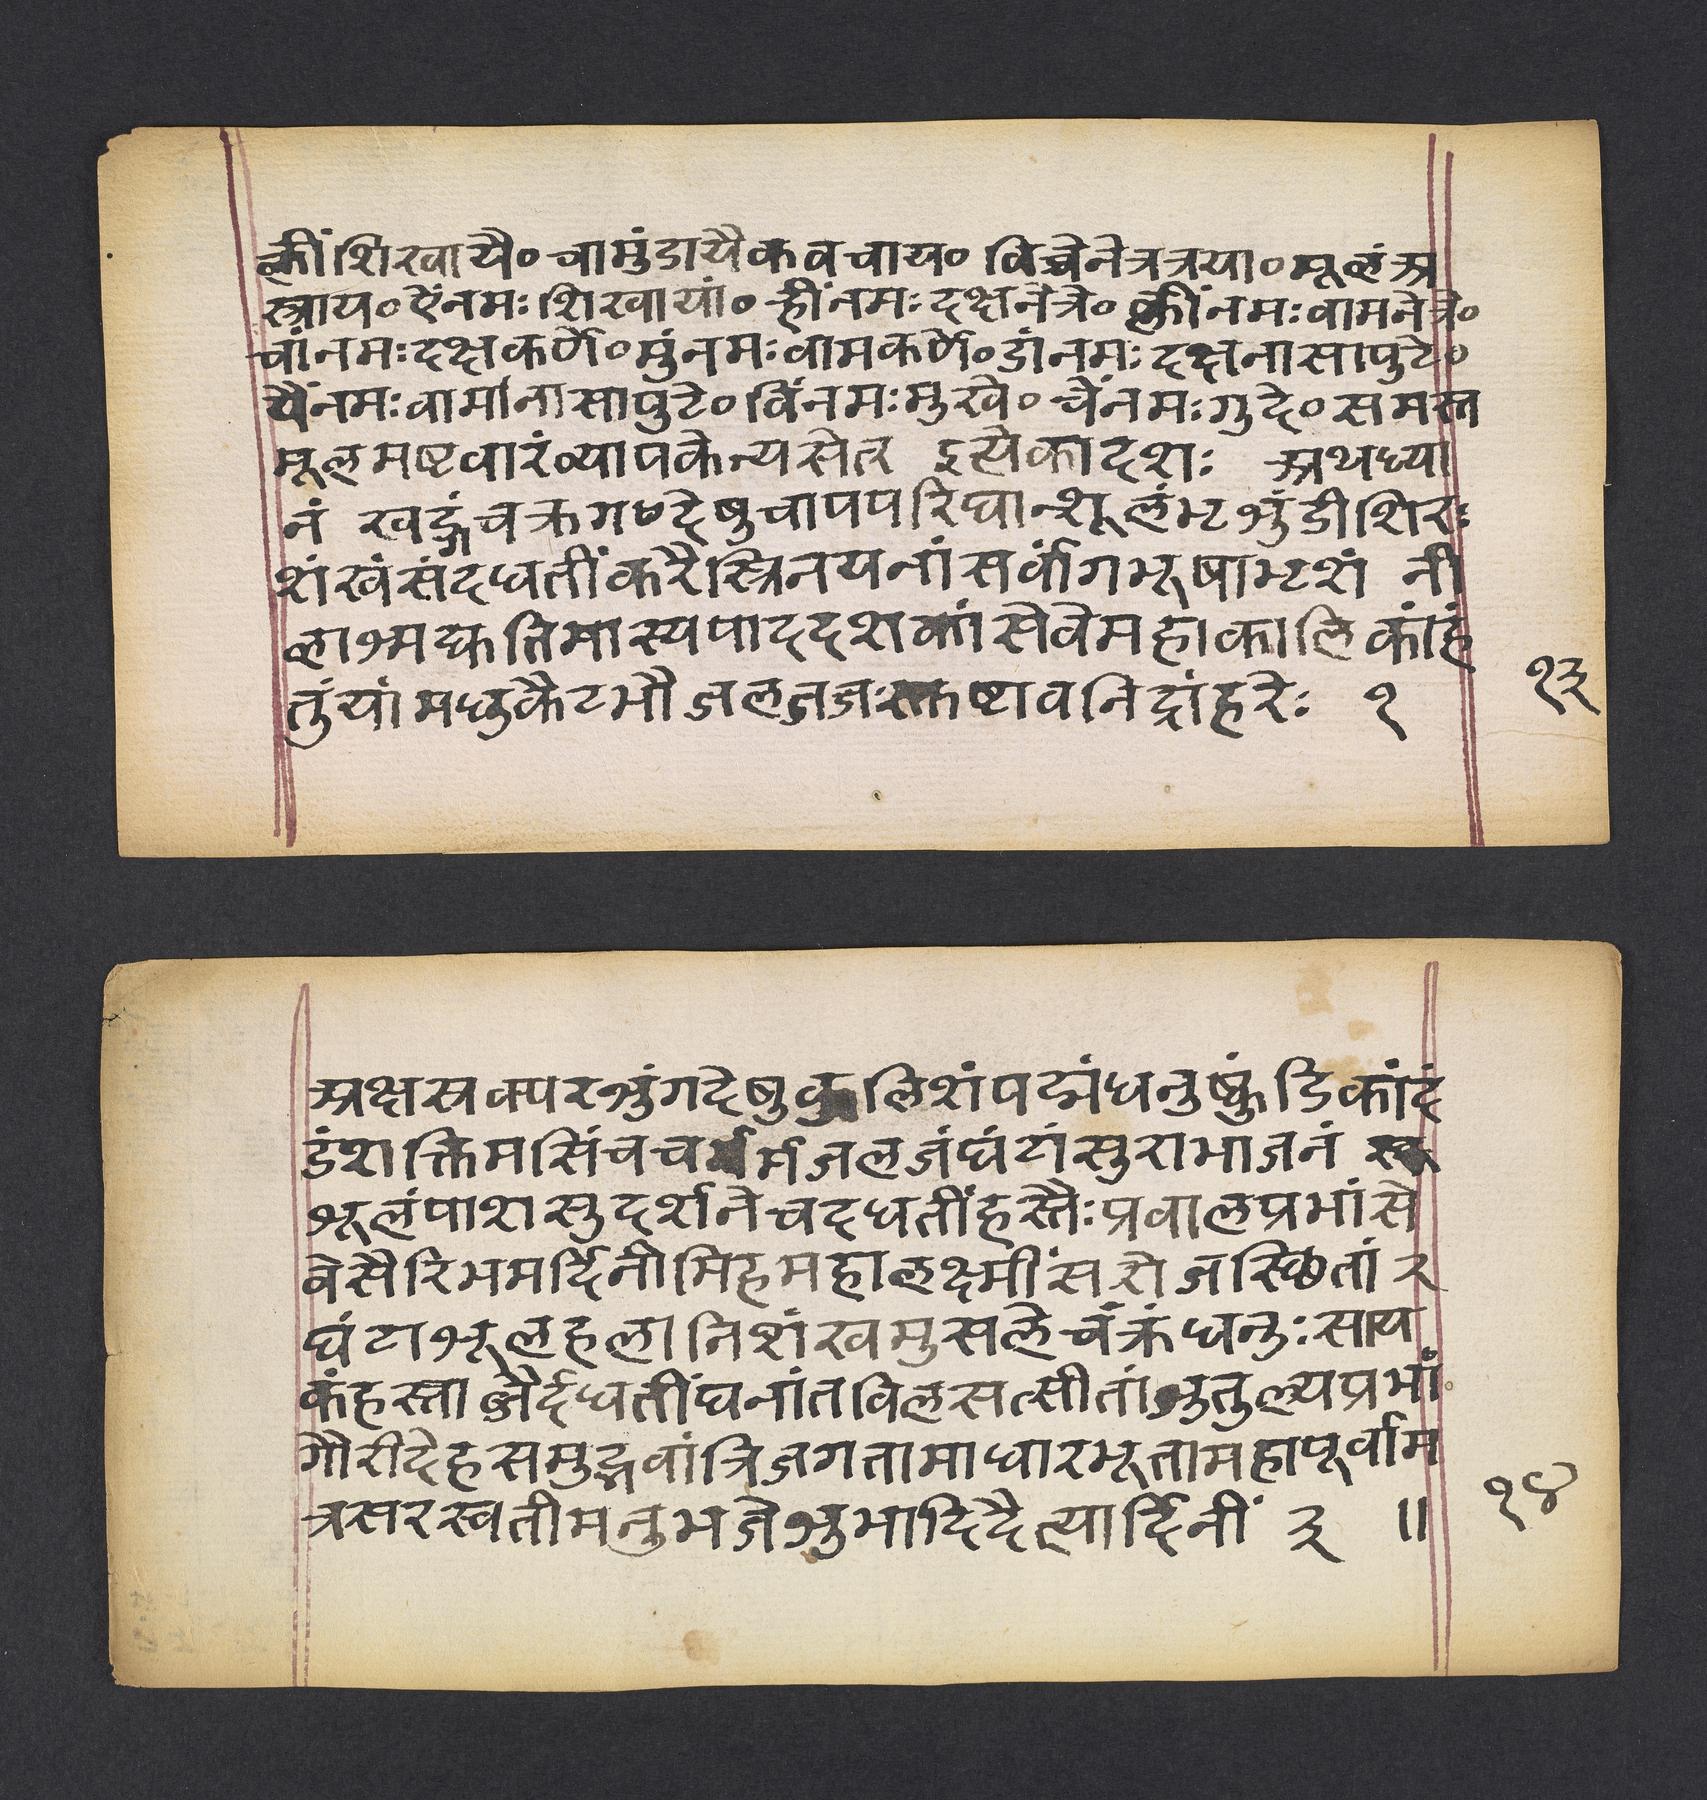 क्लीं शिखायै० चामुंडायैकवचाय० विच्चेनेत्रत्रया० मूलंअ
स्त्राय० ऐंनमः शिखायां० ह्रींनमः दक्षनेत्रे० क्लींनमः वामनेत्रे०
चांनमः दक्षकर्णे० मुंनमः वामकर्णे० डांनमः दक्षनासापुटे०
यैंनमः वामनासापुटे० विंनमः मुखे० चेंनमः गुदे० समस्त
मूलमष्टवारंव्यापकेन्यसेत् इत्येकादशः अथध्या
नं खड्गंचक्रगदेषुचापपरिघान्शूलंभृशुंडीशिरः
शंखंसंदधतींकरैस्त्रिनयनांसर्वांगभूषाभृशं नी
लाश्मद्युतिमास्यपाददशकांसेवेमहाकालिकांहं
तुंयांमधुकैटभौजलजज ष्टावनिद्रांहरेः १
१३
अक्षस्रक्परशुंगदेषुकुलिशंपद्मंधनुष्कुंडिकांदं
डंशक्तिमसिंचचर्मजलजंघंटांसुराभाजनं
शूलंपाशसुदर्शनेचदधतींहस्तैःप्रवालप्रभांसे
वेसैरिभमर्दिनीमिहमहालक्ष्मींसरोजस्थितां २
घंटाशूलहलानिशंखमुसलेचंक्रंधनुःसाय
कंहस्ताब्जैर्दधतींघनांतविलसत्सीतांशुतुल्यप्रभां
गौरीदेहसमुद्भवांत्रिजगतामाधारभूतामहापूर्वाम
त्रसरस्वतीमनुभजेशुभादिदैत्यार्दिनीं ३ ॥
१४